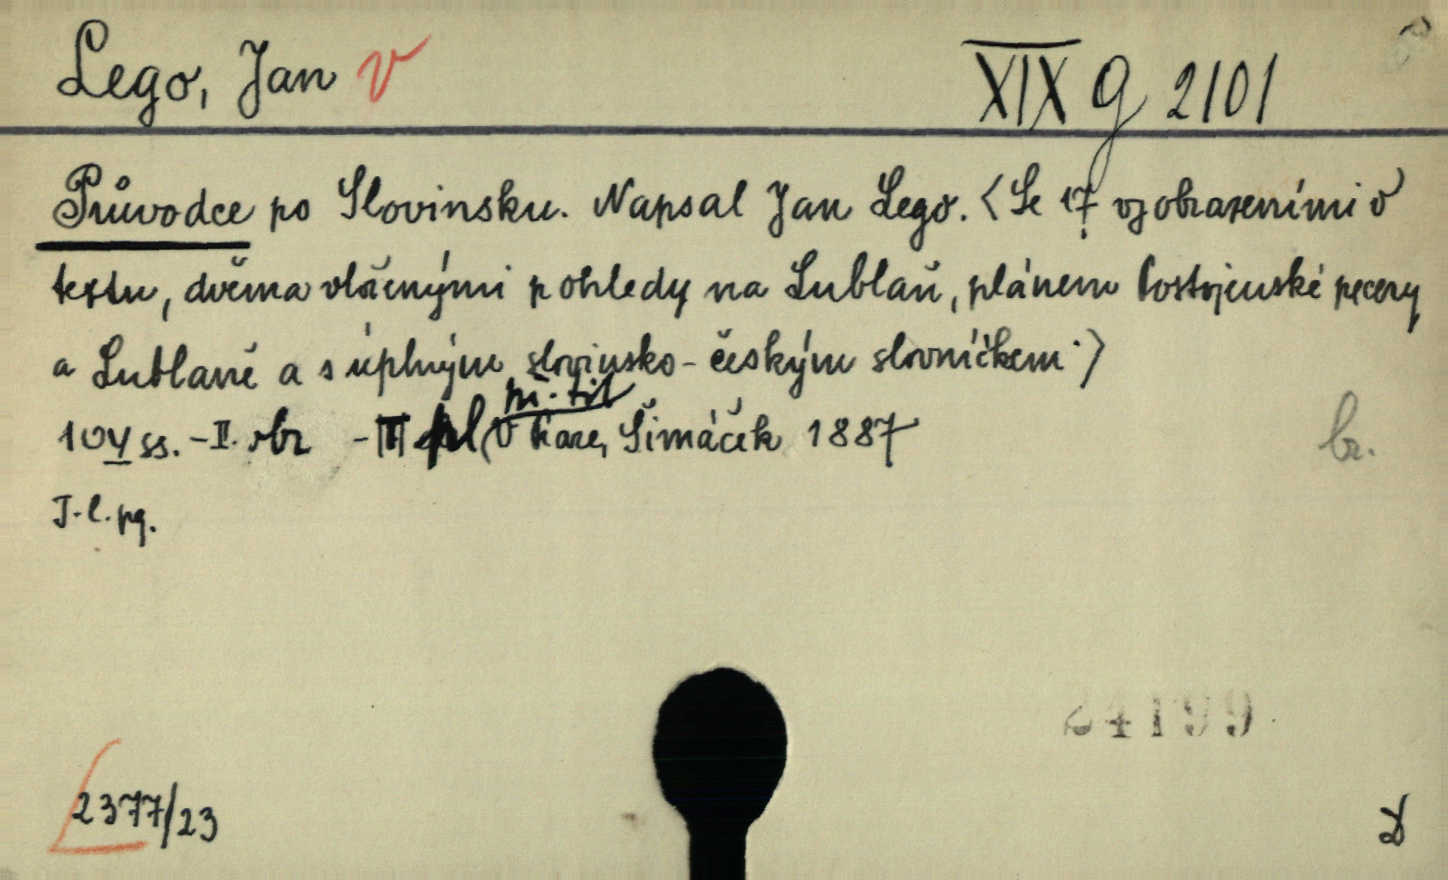 Lego, Jan v
XIX G 2101
Průvodce po Slovinsku. Napsal Jan Lego. <Se 17 vyobrazeními v
textu, dvěma vlačnými pohledy na Lublaň, plánem Postojenské pecery
a Lublaně a s úplným slovinsko-českým slovníčkem.>
př. tit
104 ss. - II. obr - III pl (V Praze, Šimáček 1887
br.
I.l.pg.
24199
2377/23